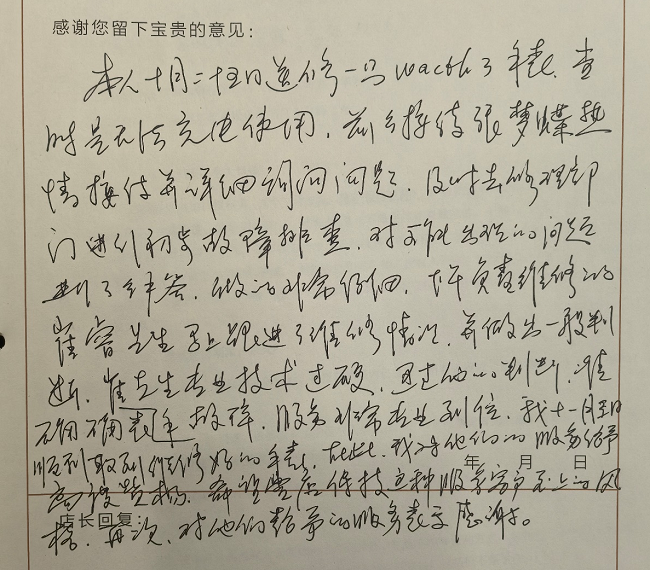 感谢您留下宝贵的意见:
本人十月二十五日送修一只wacth3手表,查
时是无法充电使用,前台接待张梦蝶热
情接待并详细询问问题,及时去修理部
门进行初步故障排查,对可能出现的问题
进行了解答,做的非常仔细,店负责维修的
崔睿先生马上跟进了维修情况,并做出一般判
断,崔先生专业技术过硬,通过他的判断,准
确确 手表故障,服务非常专业到位,我十一月 日
顺利取到维修好的手表,在此,我对他们的服务给予
高度赞扬,希望贵店保持这种服务客户至上的风
格,再次,对他们给予的服务表示感谢。
年 月 日
店长回复: